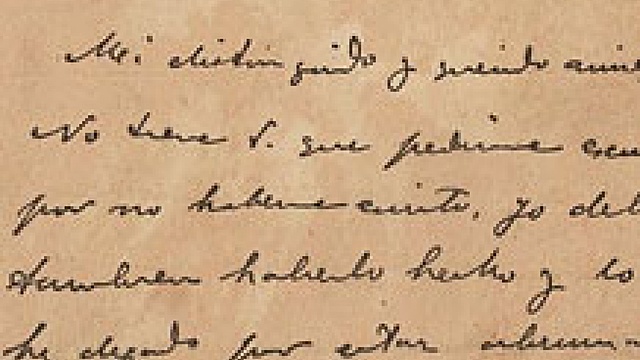 Mi distinguido y querido
No tiene V. que pedirme
por no haberme escrito, yo
tambien haberlo hecho y lo
he dejado por estar